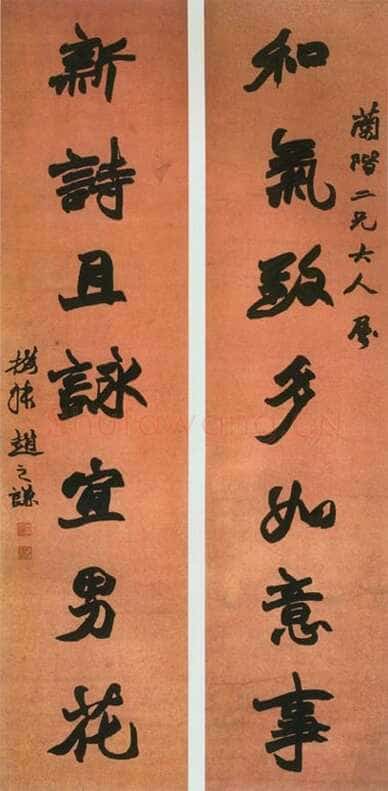 蘭階二兄大人屬
和氣致多如意事
新詩且詠宜男花
撝叔趙之謙